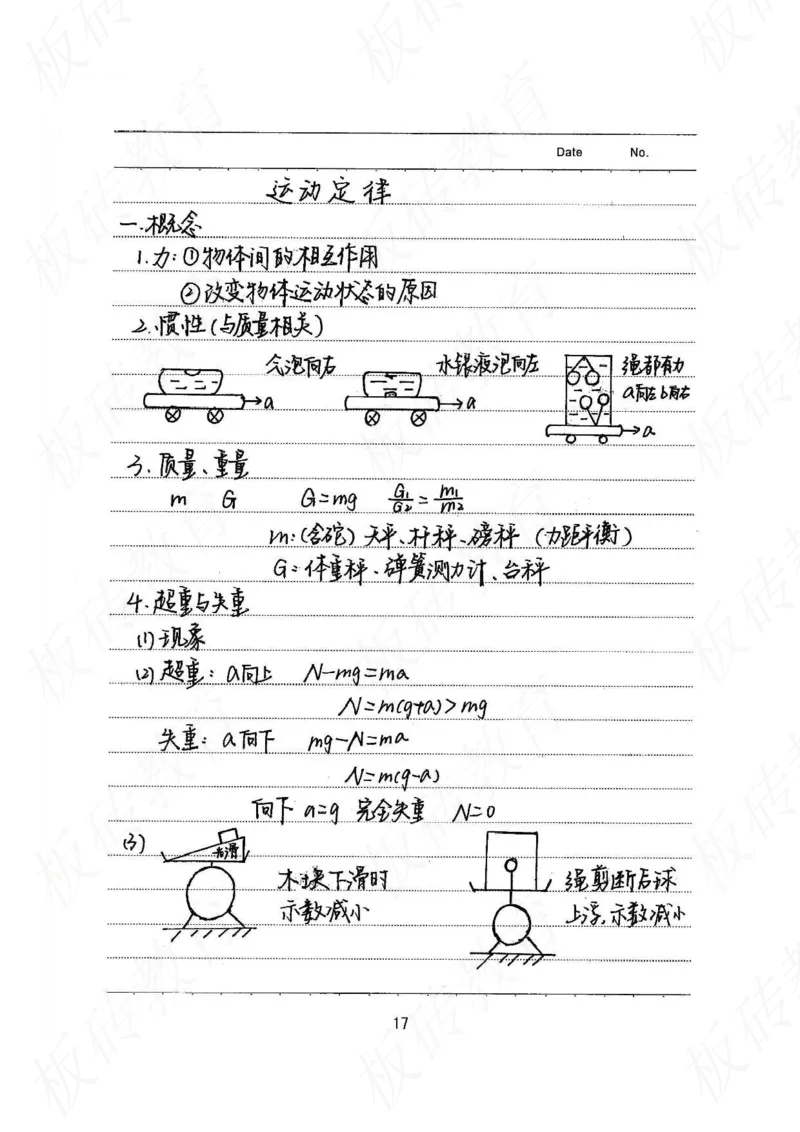 Date No.
运动定律
一.概念
1.力:①物体间的相互作用
②改变物体运动状态的原因
2.惯性(与质量相关)
气泡向右 水银液泡向左 绳都有力
a向左b向右
a a a
3.质量、重量
m G G=mg G1/G2=m1/m2
m:(含砣)天平、杆秤、磅秤 (力距平衡)
G:体重秤、弹簧测力计、台秤
4.超重与失重
(1)现象
(2)超重:a向上 N-mg=ma
N=m(g+a)>mg
失重:a向下 mg-N=ma
N=m(g-a)
向下 a=g 完全失重 N=0
(3) 光滑
木块下滑时 绳剪断后球
示数减小 上浮,示数减小
17
板砖教育